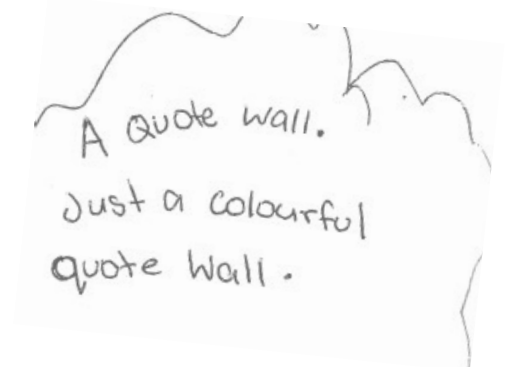 A Quote wall.
Just a colourful
quote Wall.